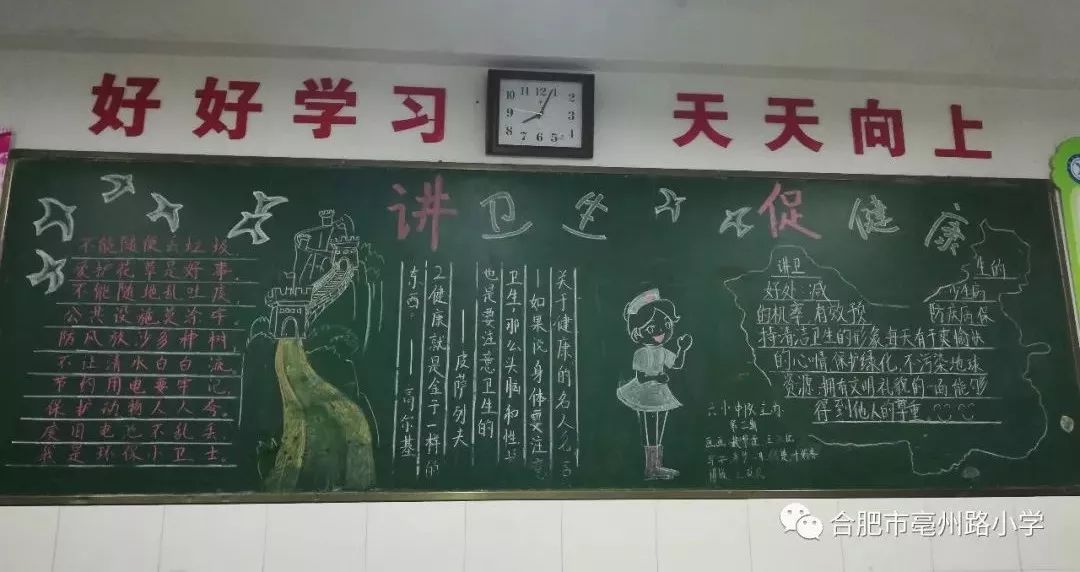 好好学习
天天向上
12 1 2 3 4 5 6 7 8 9 10 11
讲卫生 促健康
不能随便丢垃圾
爱护花草是好事,
不能随地乱吐皮,
公共设施莫涂车.
防风抗沙多种树,
不让清水白白流,
节约用电要牢记,
保护动物人人夸.
废旧电池不乱丢,
我是环保小卫士。
关于健康的名人名言
—如果说身体要注意
卫生,那么头脑和性
也是要注意卫生的
——皮萨列夫
2健康就是金子一样的
东西。
——高尔基
讲卫生的
好处:减少生病
的机率,有效预防疾病保
持清洁卫生的形象每天有于爽愉快
的心情,保护绿化,不污染地球
资源,拥有文明礼貌的
得到他人的尊重。
六小中队主办
合肥市亳州路小学